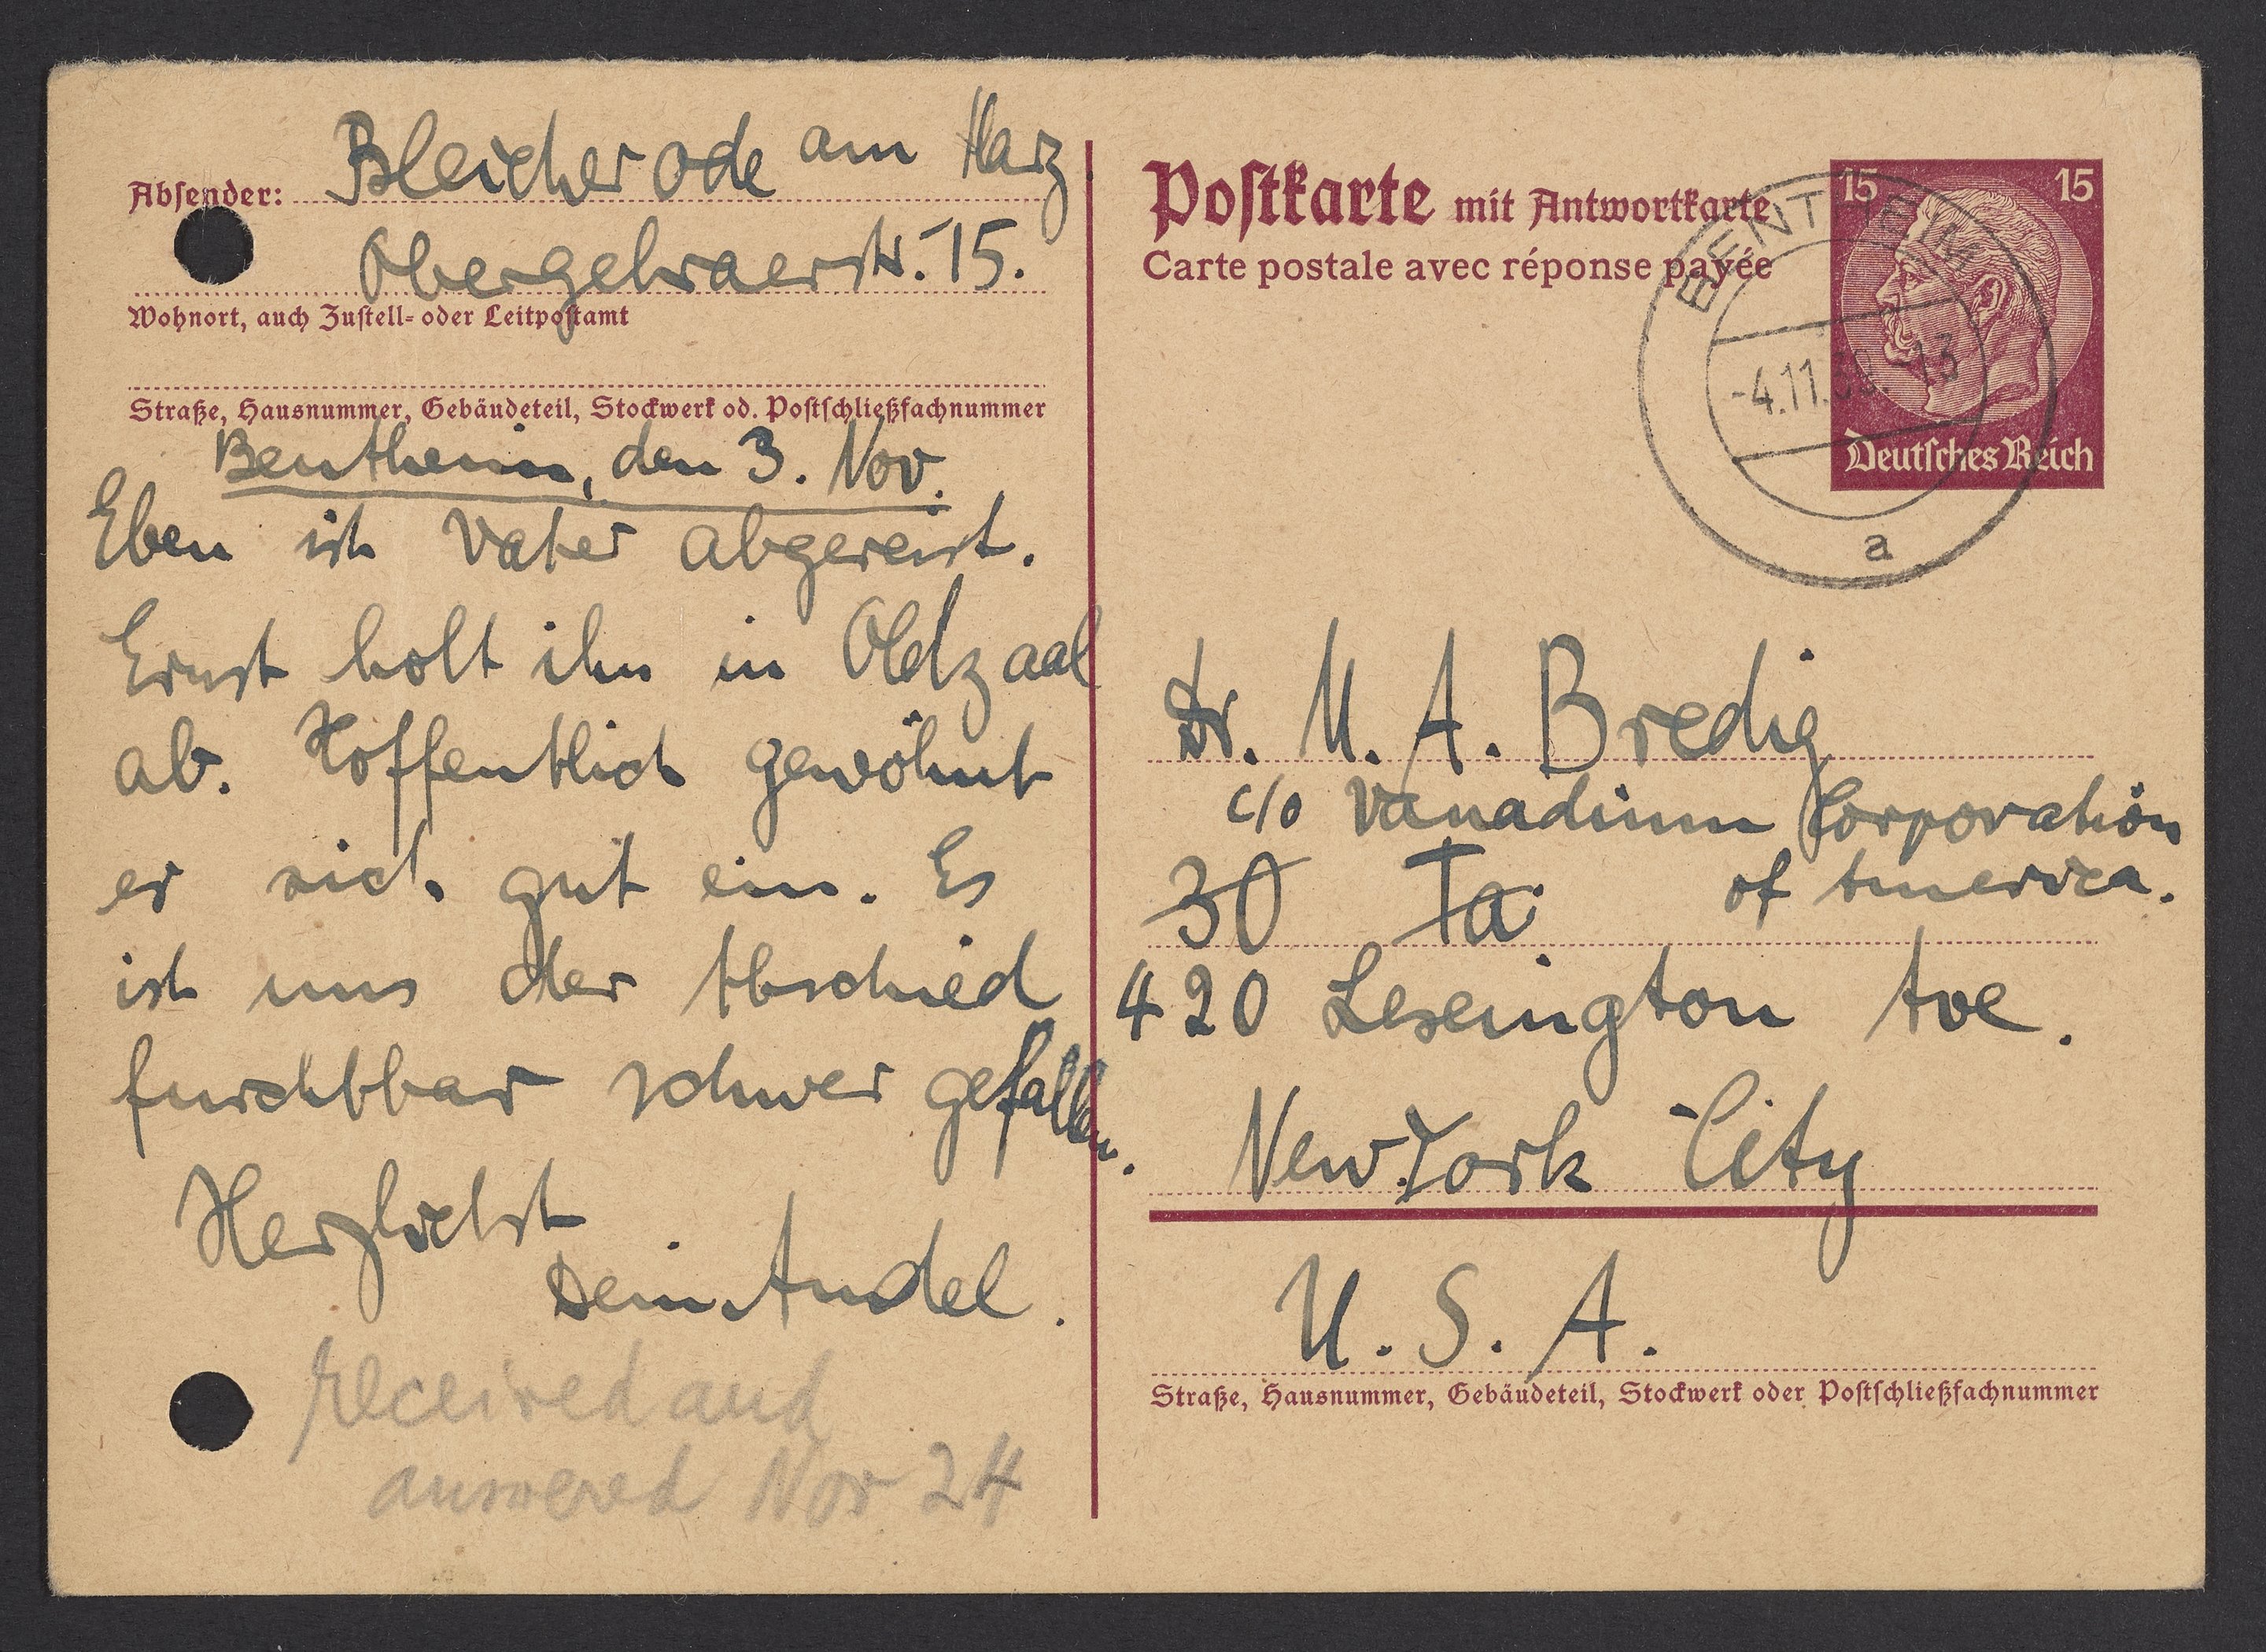 Absender: Bleicherode am Harz
Obergebraerstr. 15.
Wohnort, auch Zustell- oder Leitpostamt
Straße, Hausnummer, Gebäudeteil, Stockwerk od. Postschließfachnummer
Bentheim, den 3. Nov.
Eben ist Vater abgereist.
Ernst holt ihn in Oldzaal
ab. Hoffentlich gewöhnt
er sich gut ein. Es
ist uns der Abschied
furchtbar schwer gefallen.
Herzlichst
Dein Andel.
received and
answered Nov 24
Postkarte mit Antwortkarte
Carte postale avec réponse payée
15 15
Deutsches Reich
BENTHEIM
-4.11.39.-13
a
Dr. M. A. Bredig
c/o Vanadium Corporation
of America.
30 Ta
420 Lexington Ave.
New York City
U. S. A.
Straße, Hausnummer, Gebäudeteil, Stockwerk oder Postschließfachnummer